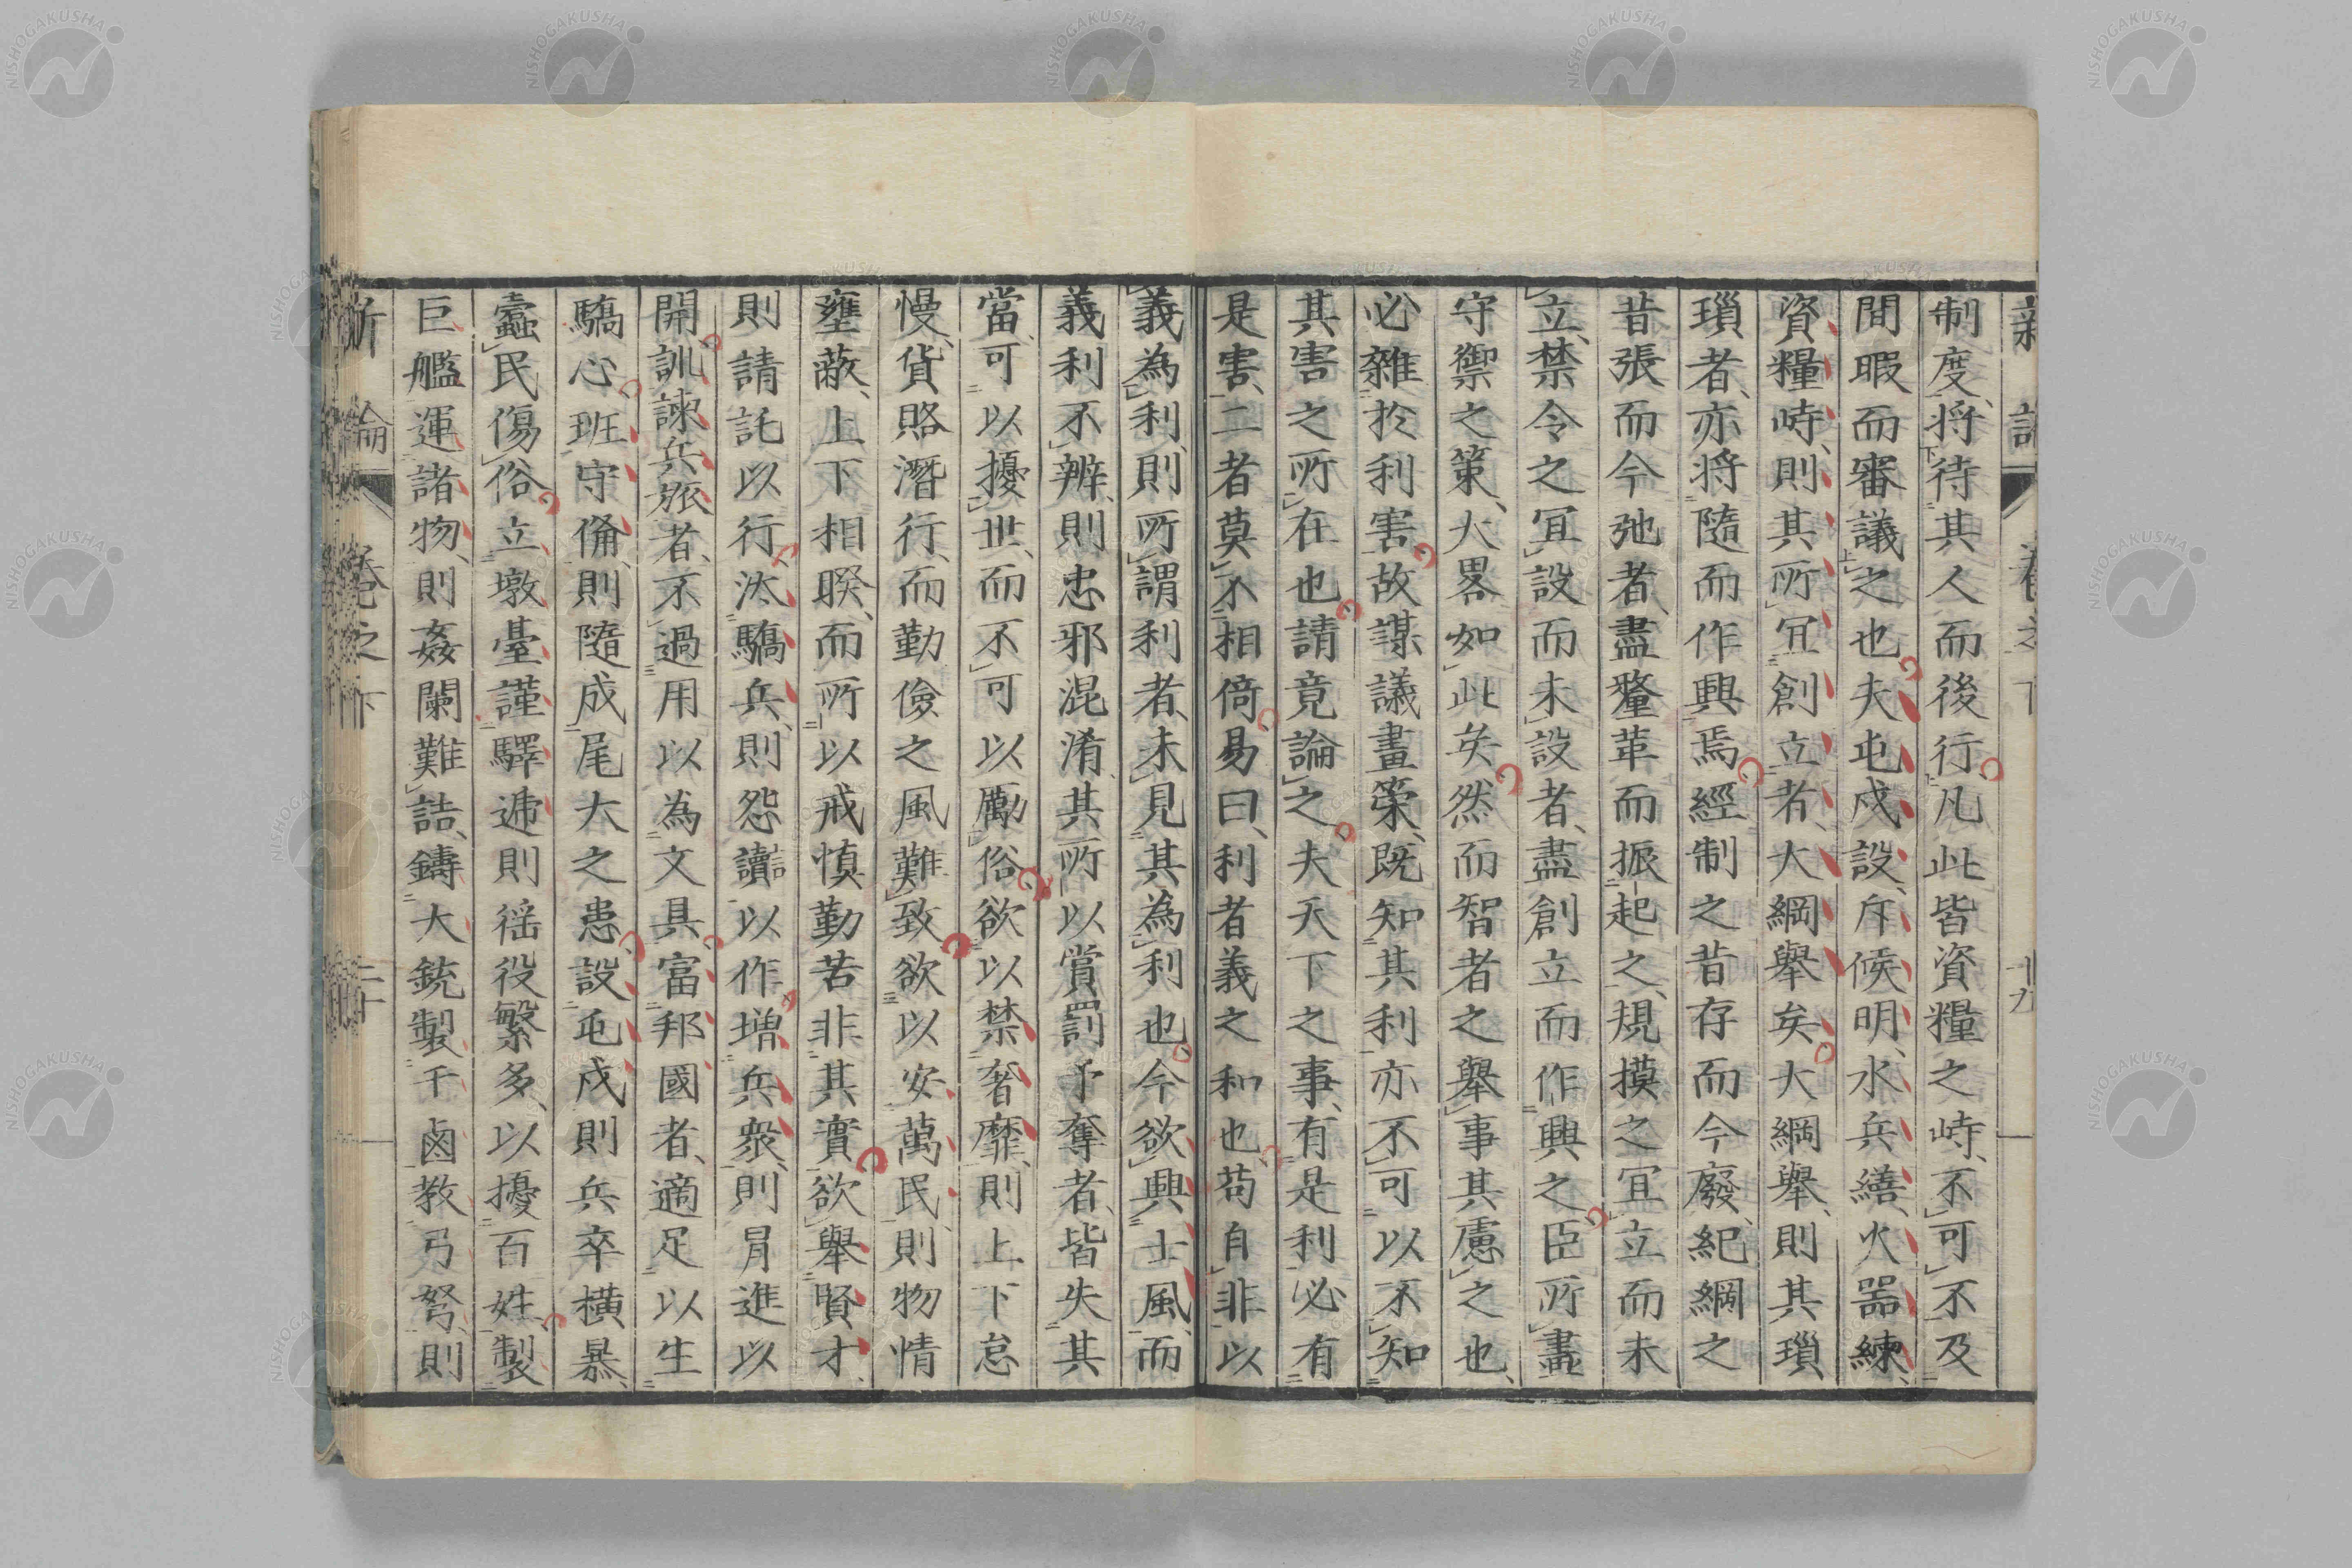 新論 卷之下 十九
制度、將待其人而後行、凡此皆資糧之峙、不可不及
間暇而審議之也、夫屯戍設、斥候明、水兵繕、火器練、
資糧峙、則其所宜創立者、大綱舉矣、大綱舉、則其瑣
瑣者、亦將隨而作興焉、經制之昔存而今廢、紀綱之
昔張而今弛者、盡釐革而振起之、規摸之宜立而未
立、禁令之宜設而未設者、盡創立而作興之、臣所盡
守禦之策、大畧如此矣、然而智者之舉事其慮之也、
必雜於利害、故謀議畫策、既知其利、亦不可以不知
其害之所在也、請竟論之、夫天下之事、有是利必有
是害、二者莫不相倚、易曰、利者義之和也、苟自非以
義為利、則所謂利者、未見其為利也、今欲興士風、而
義利不辨、則忠邪混淆、其所以賞罰予奪者、皆失其
當、可以擾世、而不可以勵俗、欲以禁奢靡、則上下怠
慢、貨賂潛行、而勤儉之風難致、欲以安萬民、則物情
壅蔽、上下相睽、而所以戒慎勤苦非其實、欲舉賢才、
則請託以行、汰驕兵、則怨讟以作、增兵眾、則冒進以
開、訓諫兵旅者、不過用以為文具、富邦國者、適足以生
驕心、班守偹、則隨成尾大之患、設屯戍則兵卒橫暴、
蠹民傷俗、立墩臺謹驛遞則徭役繁多、以擾百姓、製
巨艦運諸物、則姦闌難詰、鑄大銃製干鹵教弓弩、則
新論 卷之下 二十
NISHOGAKUSHA